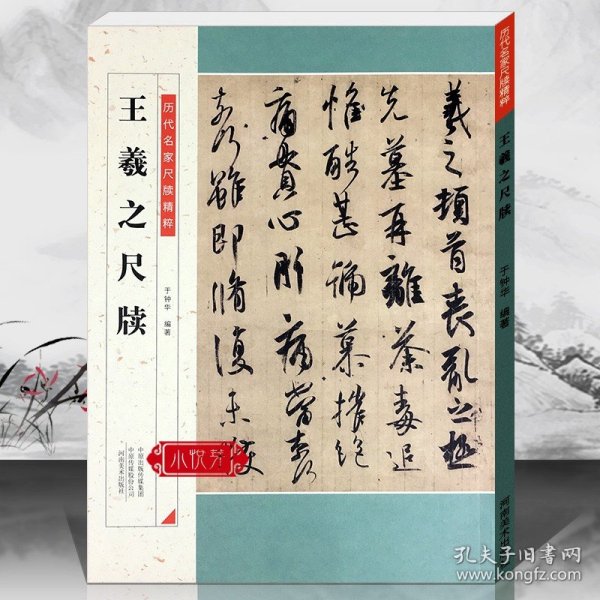 历代名家尺牍精粹
王羲之尺牍
于钟华 编著
中原出版传媒集团
中原传媒股份公司
河南美术出版社
羲之頓首喪亂之極
先墓再離荼毒追
惟酷甚號慕摧絕
痛貫心肝痛當奈何
奈何雖即脩復未
历代名家尺牍精粹
王羲之尺牍
于钟华 编著
河南美术出
孔夫子旧书网
www.kongfz.com